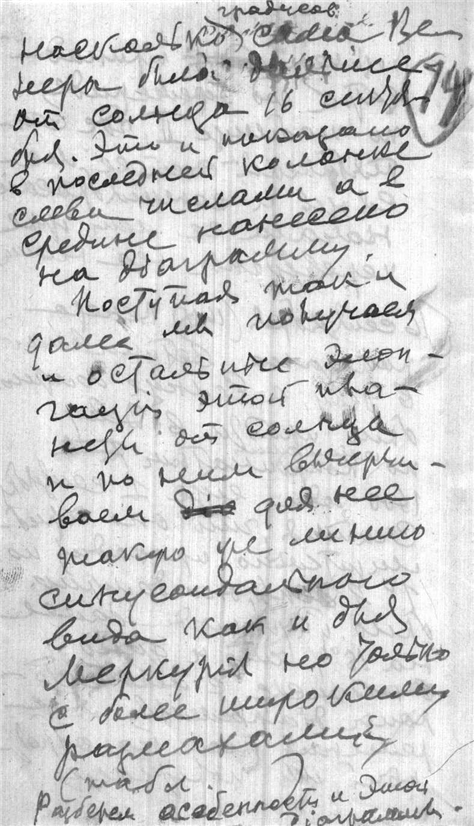 градусов
насколько сама Ве-
неры была дальше
от солнца 16 сентя-
бря. Это и показано
74
в последней колонке
слева числами а в
средине нанесено
на діаграмму.
Поступая так и
далее мы получаем
и остальные элон-
гаціи этой пла-
неты от солнца
и по ним вычерчи-
ваем для нее
такую же линию
синусоидального
вида как и для
Меркурія но только
с более широкими
размахами
(табл.        )
Разберем особенности и этой
діаграммы.